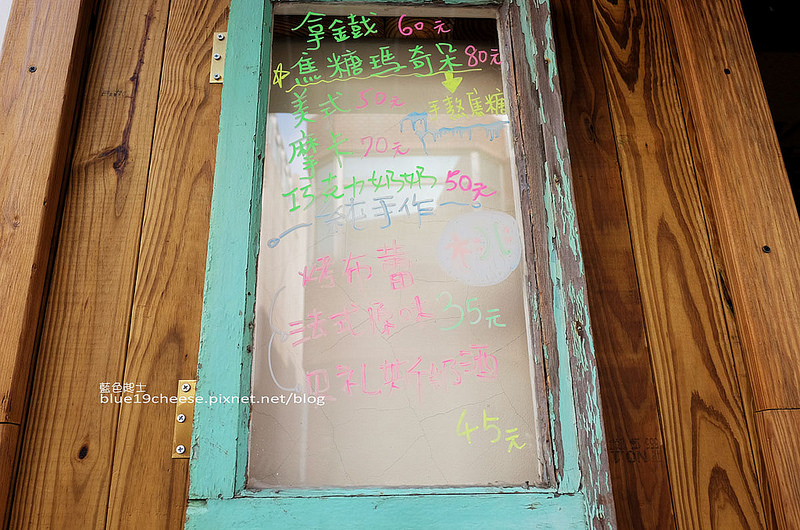 拿鐵 60元
焦糖瑪奇朵 80元
手工焦糖
美式 50元
摩卡 70元
巧克力奶奶 50元
純手作
烤布蕾
法式原味 35元
奶酒
45元
藍色起士
blue19cheese.pixnet.net/blog